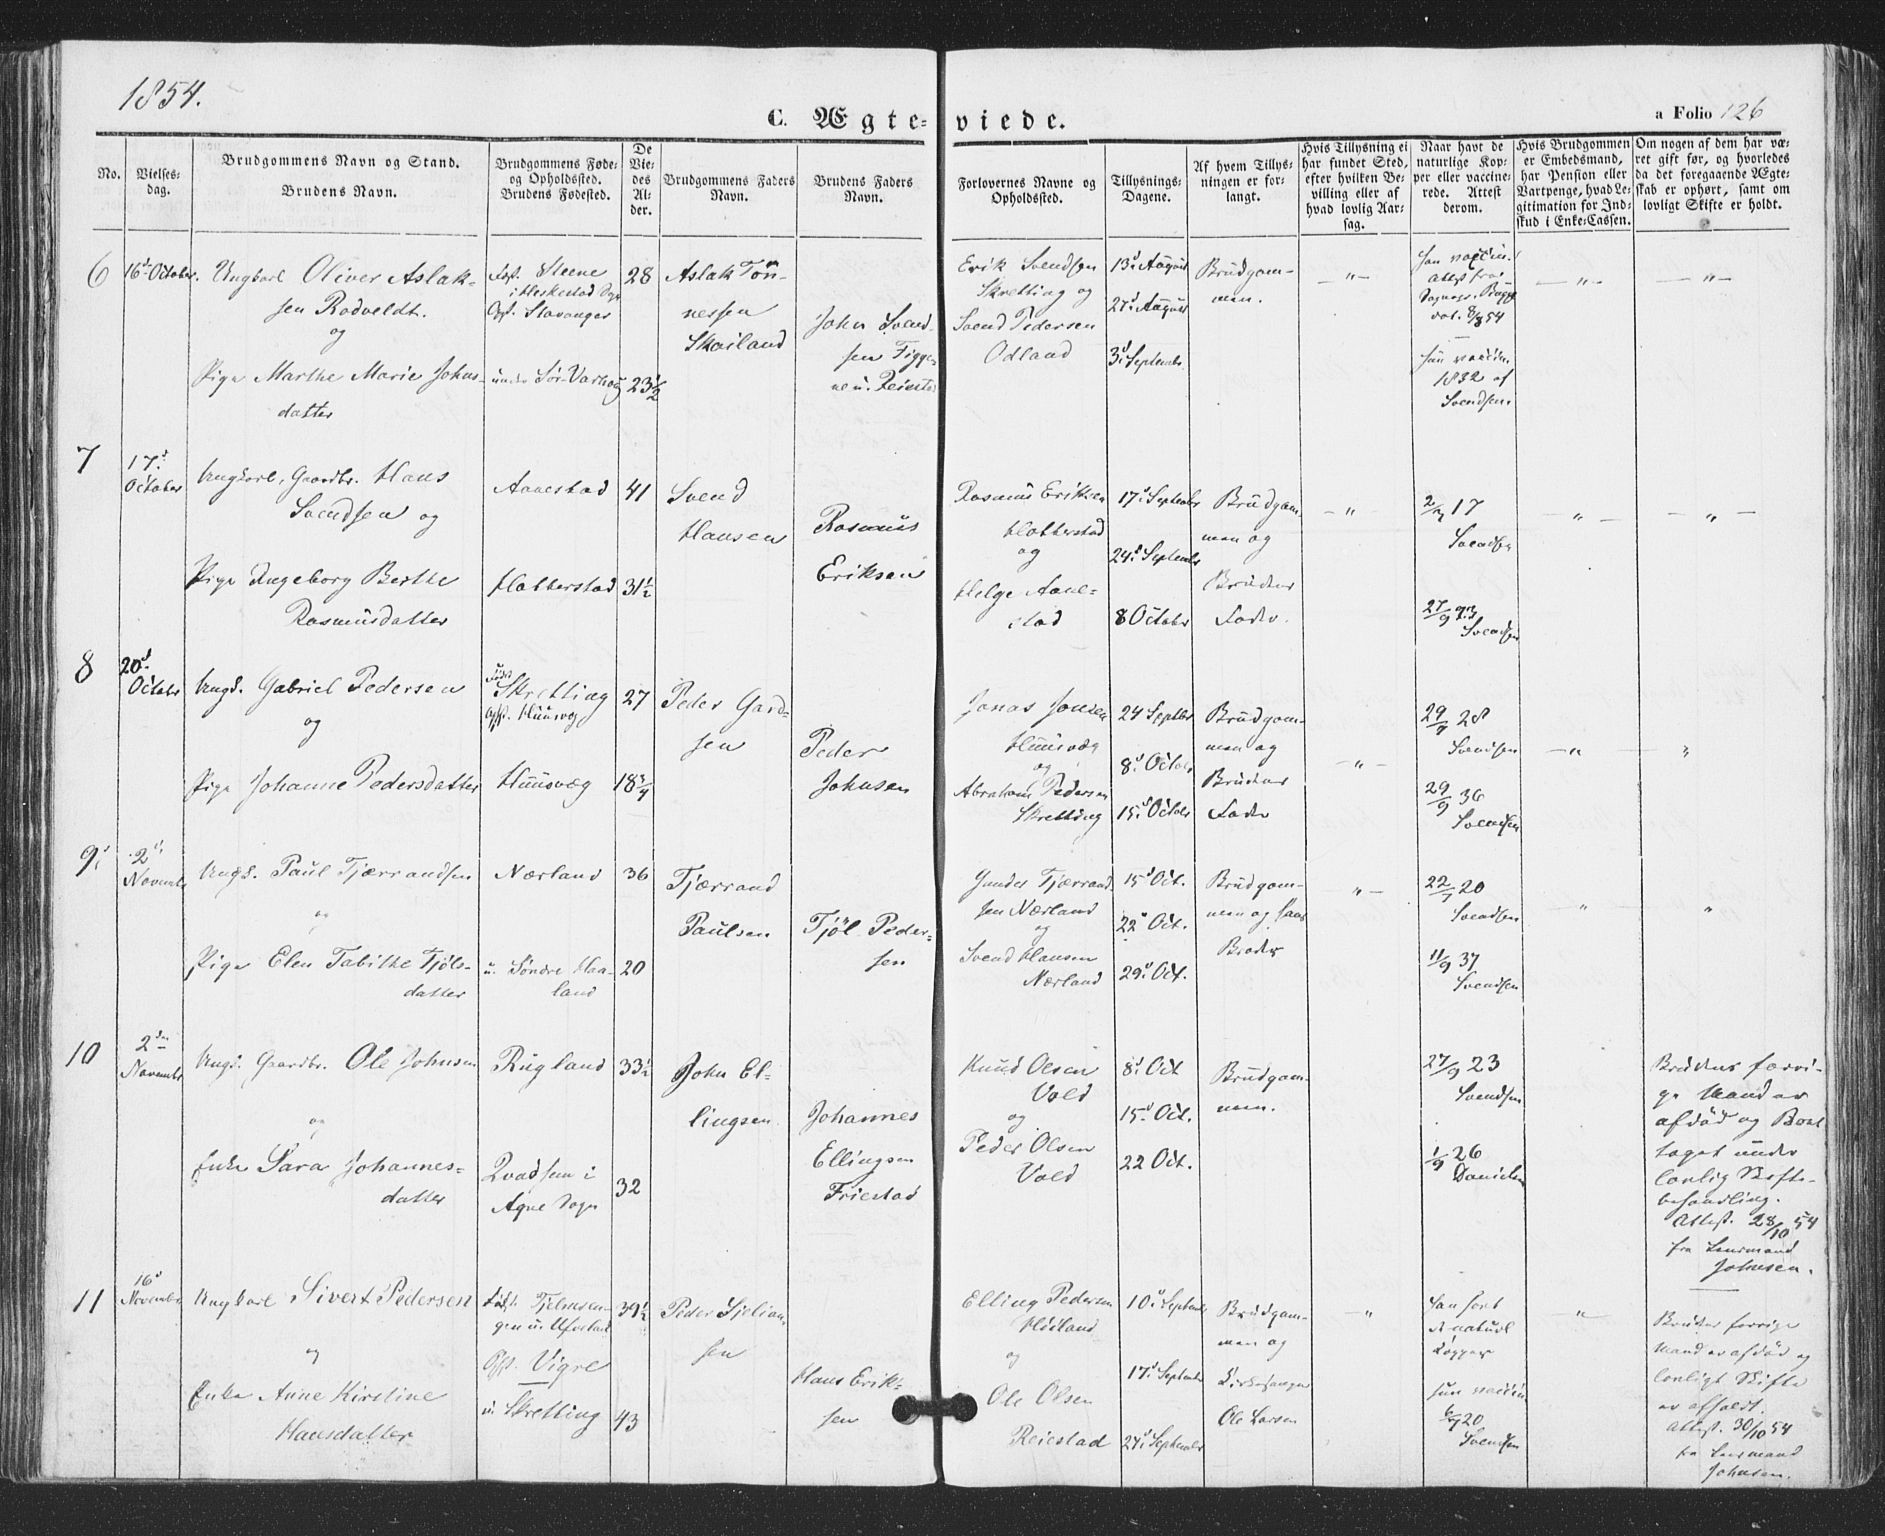 1854.
C. Ægte-
viede.
a Folio 126
No.
Vielses-
dag.
Brudgommens Navn og Stand.
Brudens Navn.
Brudgommens Føde-
og Opholdssted.
Brudens Fødested.
De
Vie-
des
Al-
der.
Brudgommens Faders
Navn.
Brudens Faders
Navn.
Forlovernes Navne og
Opholdssted.
Tillysnings-
Dagene.
Af hvem Tillys-
ningen er for-
langt.
Hvis Tillysning ei
har fundet Sted,
efter hvilken Be-
villing eller af
hvad lovlig Aar-
sag.
Naar havt de
naturlige Kop-
per eller vaccine-
rede. Attest
derom.
Hvis Brudgommen
er Embedsmand,
har Pension eller
Vartpenge, hvad Le-
gitimation for Ind-
skud i Enke-Cassen.
Om nogen af dem har væ-
ret gift før, og hvorledes
da det foregaaende Ægte-
skab er ophørt, samt om
lovligt Skifte er holdt.
6
16d October.
Ungkarl Oliver Aslak-
sen Rodveldt.
og
Pige Marthe Marie Johns-
datter
Fød. Steene
i Heskestad Sogn
Oph. Stavanger
under Sör-Varhoug
28
23½
Aslak Tön-
nessen
Skailand
John Svend-
sen
Erik Svendsen
Skretting og
Svend Pedersen
Odland
13d August
27d August
3d Septembr
Brudgom-
men.
– " –
han vaccin.
Attest fra
8/8 54
hun vaccin.
1832 af
Svendsen.
– " –
– " –
7
17d
October
Ungkarl, Gaardbr. Hans
Svendsen og
Pige Ingeborg Berthe
Rasmusdatter
Aanestad
Hobberstad
41
31½
Svend
Hansen
Rasmus
Eriksen
Rasmus Eriksen
Hobberstad
og
Helge Aane-
stad
17d Septembr
24d Septembr
8 Octobr
Brudgom-
men og
Brudens
Fader.
– " –
17
Svendsen
27/9 23
Svendsen
– " –
– " –
8
20d
Octobr
Ungk. Gabriel Pedersen
og
Pige Johanne Pedersdatter
Föd
Skretting
Oph. Huusvæg
Huusvæg
27
18¾
Peder Gard-
sen
Peder
Johnsen
Jonas Jonsen
Huusvæg
og
Abraham Pedersen
Skretting
24 Septbr
8d Octobr
15d Octobr
Brudgom-
men og
Brudens
Fader
– " –
28
Svendsen
29/9 36
Svendsen
– " –
"
9
2d
Novembr
Ungk. Paul Tjærrandsen
og
Pige Elen Tabithe Tjöls-
datter
Nærland
u. Söndre Haa-
land
36
20
Tjærrand
Paulsen
Tjöl Peder-
sen
Gunder Tjærrand-
sen Nærland
og
Svend Hansen
Nærland
15d Oct.
22d Oct.
29d Oct.
Brudgom-
men og hans
Broder
" –
22/7 20
Svendsen
11/9 37
Svendsen
"
"
10
2den
Novembr
Ungk. Gaardbr. Ole Johnsen
og
Enke Sara Johannes-
datter
Rugland
Qvadsem i
Agne Sogn
33½
32
John El-
lingsen.
Johannes
Ellingsen
Friestad
Knud Olsen
Vold
og
Peder Olsen
Vold
8d Oct
15d Oct.
22 Oct.
Brudgom-
men.
27/9 23
Svendsen
1/9 26
Danielsen
Brudens forri-
ge Mand er
afdöd og Boet
taget under
lovlig Skifte-
behandling.
Attest. 28/10 54
fra Lensmand
Johnsen.
11
16d
Novembr
Ungkarl Sivert Pedersen
og
Enke Anne Kirstine
Hansdatter
Oph. Vigre
u. Skretting
39½
43
Peder
sen
Hans Erik-
sen
Elling Pedersen
Höiland
og
Ole Olsen
Reiestad
10d Septembr
17d Septembr
24d Septembr
Brudgom-
men og
Kirkesanger
Ole Larsen
"
han havt
d naturl
Kopper
hun vaccin
20
Svendsen
" –
Brudens forrige
Mand er afdöd og
lovligt Skifte
er afholdt.
Attest. 30/10 54
fra Lensmand
Johnsen.